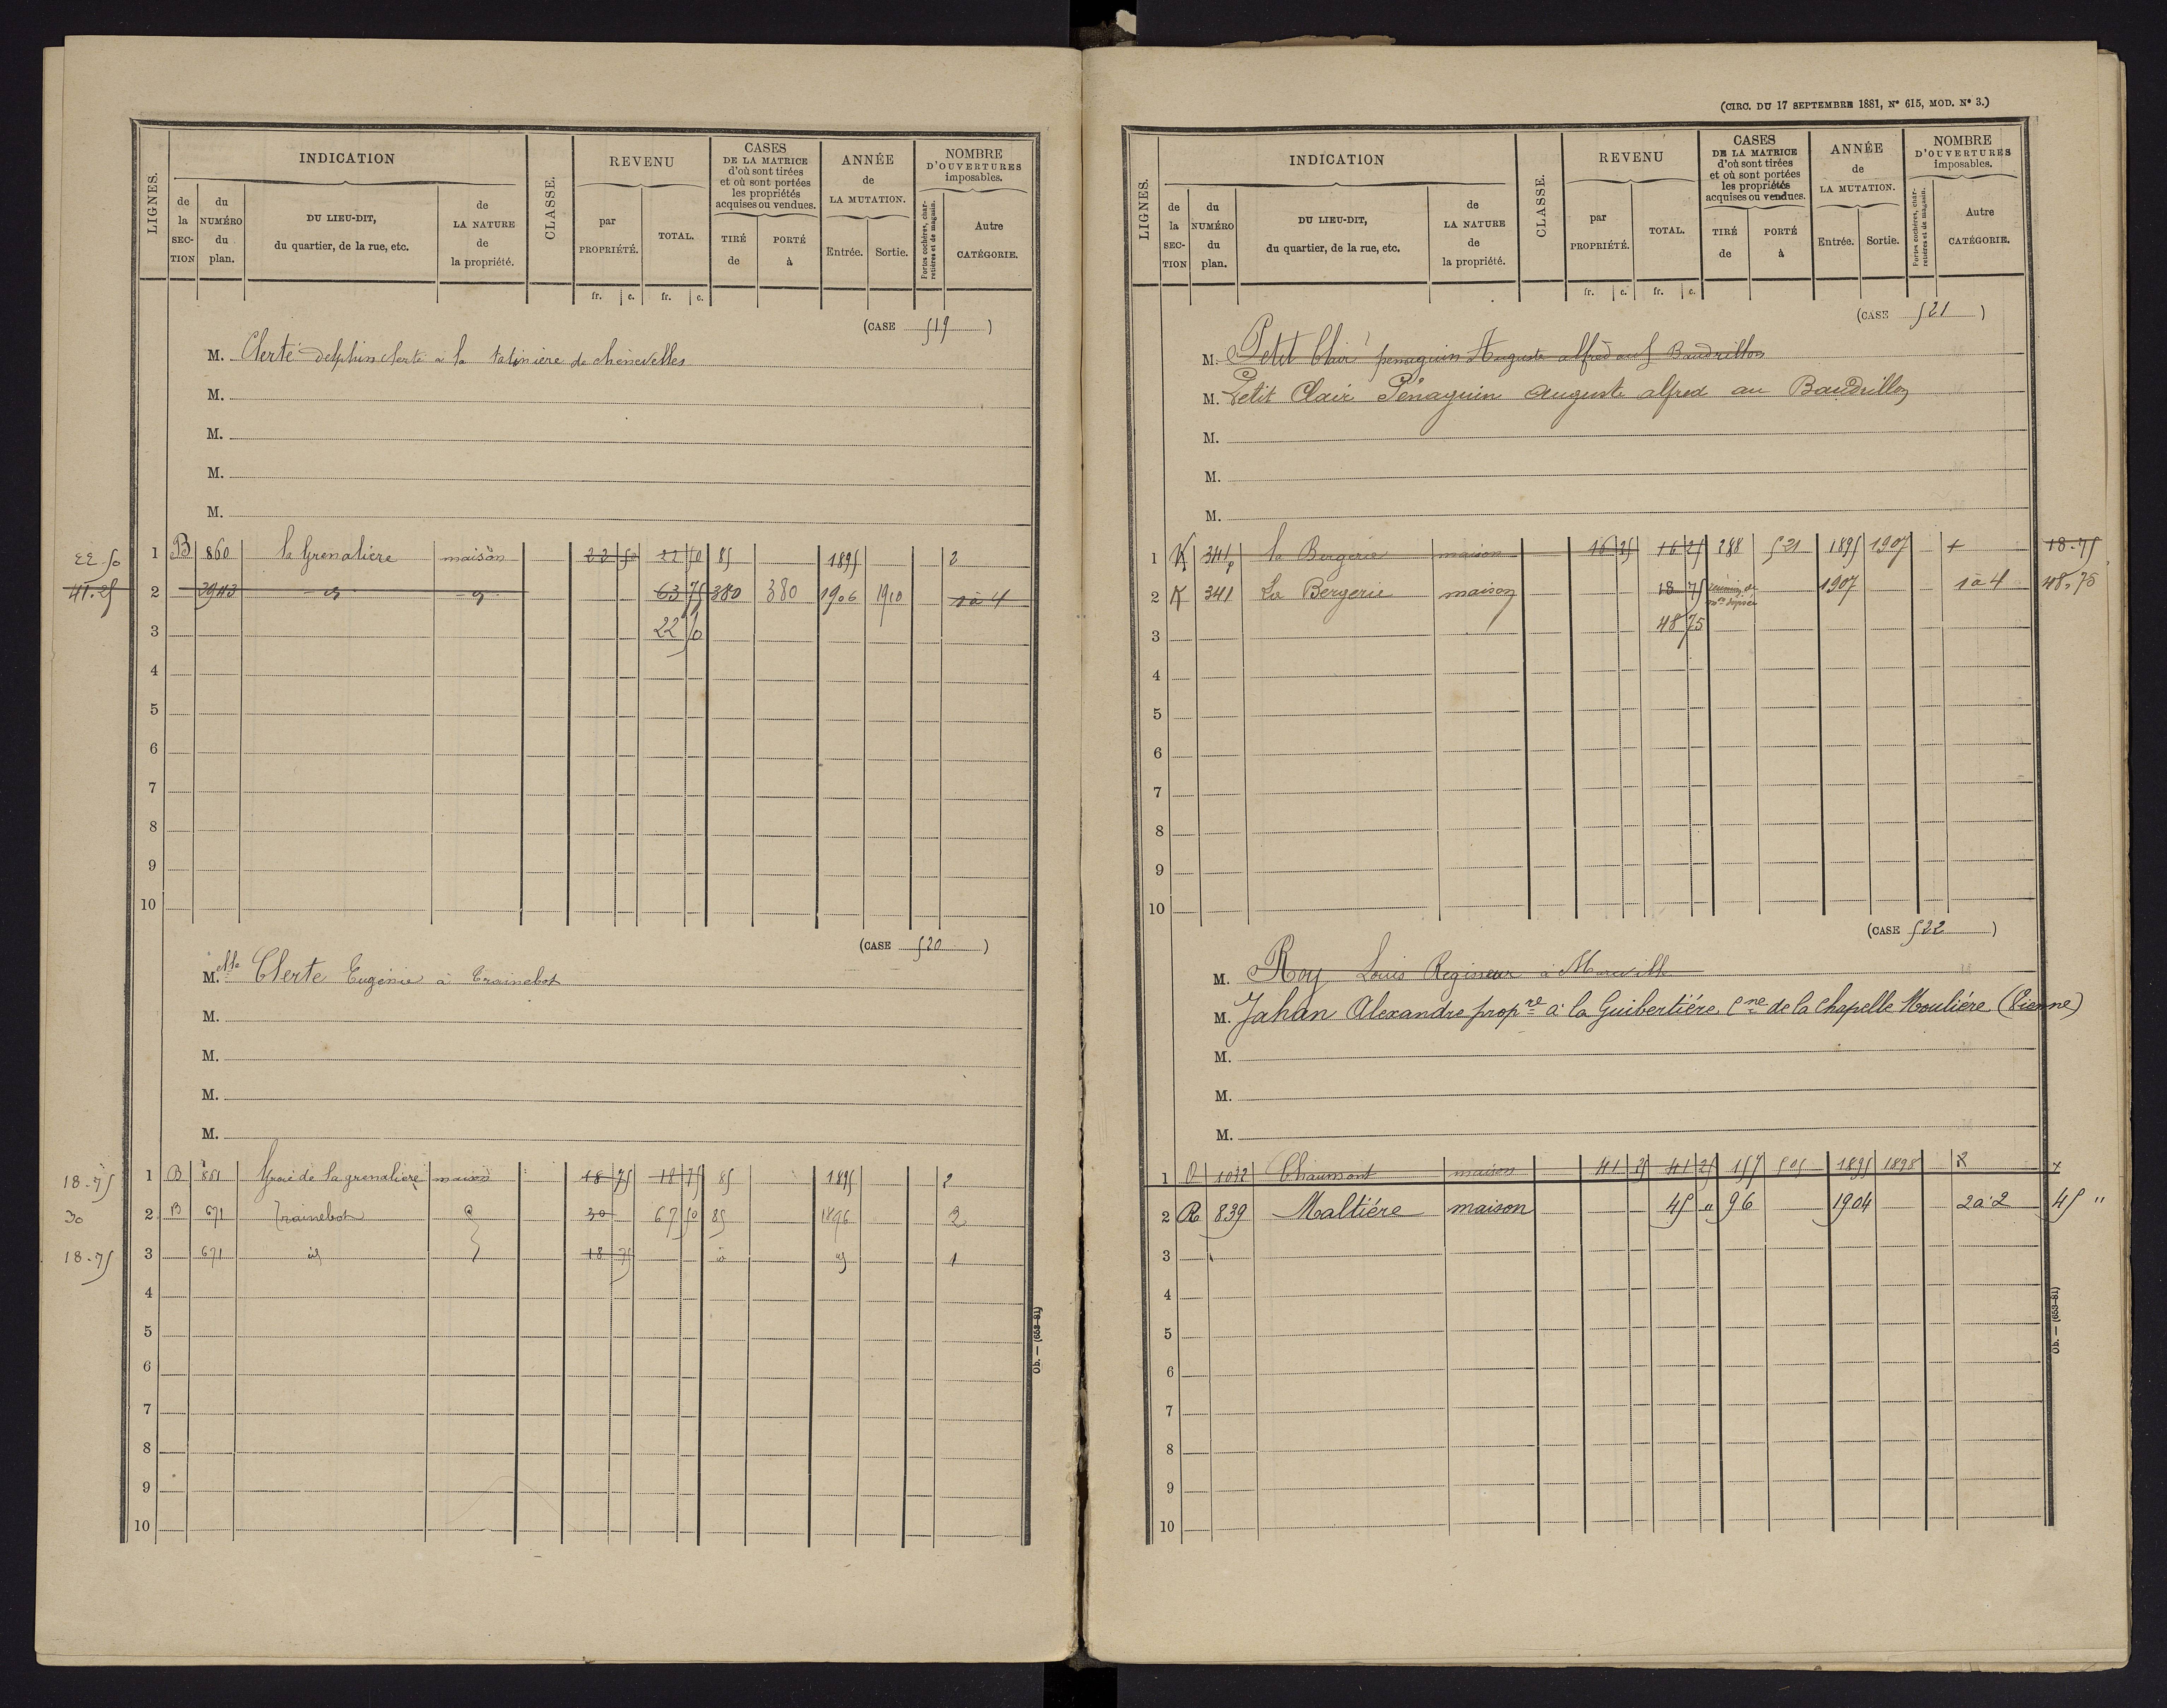 LIGNES.
INDICATION
CLASSE.
REVENU
CASES
DE LA MATRICE
d'où sont tirées
et où sont portées
les propriétés
acquises ou vendues.
ANNÉE
de
LA MUTATION.
NOMBRE
D'OUVERTURES
imposables.
de la SECTION
du NUMÉRO du plan.
DU LIEU-DIT,
du quartier, de la rue, etc.
de LA NATURE de la propriété.
par PROPRIÉTÉ.
TOTAL.
TIRÉ de
PORTÉ à
Entrée.
Sortie.
Portes cochères, charretières et de magasin.
Autre CATÉGORIE.
fr. c. fr. c.
(CASE 519)
M. Clerté delphin clerté à la talinière de chenevelles
M.
M.
M.
M.
22 50 1 B 860 la Grenalière maison 22 50 22 50 85 1895 2
41.25 2 2943 d° d° 63 75 380 380 1906 1910 1 à 4
3 22 50
4
5
6
7
8
9
10
(CASE 520)
M.elle Clerte Eugénie à Trainebot
M.
M.
M.
M.
18-75 1 B 861 Groie de la grenalière maison 18 75 18 75 85 1895 2
30 2 B 671 Trainebot d 30 67 50 85 1896 2
18-75 3 671 id 18 75 d 1
4
5
6
7
8
9
10
Ob. — (653-81)
(CIRC. DU 17 SEPTEMBRE 1881, N° 615, MOD. N° 3.)
LIGNES.
INDICATION
CLASSE.
REVENU
CASES
DE LA MATRICE
d'où sont tirées
et où sont portées
les propriétés
acquises ou vendues.
ANNÉE
de
LA MUTATION.
NOMBRE
D'OUVERTURES
imposables.
de la SECTION
du NUMÉRO du plan.
DU LIEU-DIT,
du quartier, de la rue, etc.
de LA NATURE de la propriété.
par PROPRIÉTÉ.
TOTAL.
TIRÉ de
PORTÉ à
Entrée.
Sortie.
Portes cochères, charretières et de magasin.
Autre CATÉGORIE.
fr. c. fr. c.
(CASE 521)
M. Petit Clair penaguin Auguste alfred au Baudrillon
M. Petit Clair Pénaguin auguste alfred au Baudrillon
M.
M.
M.
1 K 341p la Bergerie maison 16 25 16 25 288 521 1895 1907 1 18-75
2 K 341 La Bergerie maison 18 75 1907 1 à 4 48,75
3 48 75
4
5
6
7
8
9
10
(CASE 522)
M. Roy Louis Regisseur à
M. Jahan Alexandre propre à la Guibertiére, Cne de la Chapelle Mouliére (Vienne)
M.
M.
M.
1 O 1012 Chaumont maison 41 25 41 25 157 505 1895 1898 2
2 R 839 Maltiére maison 45 " 96 1904 2 à 2 45 "
3
4
5
6
7
8
9
10
Ob. — (653-81)